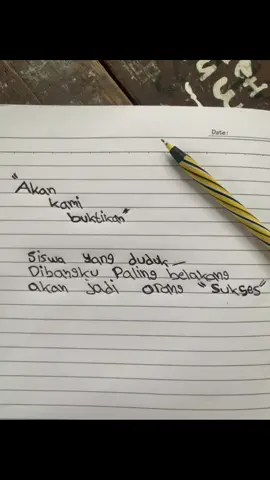 Date:
"Akan
kami
buktikan"
Siswa yang duduk
Dibangku Paling belakang
akan jadi orang "Sukses"